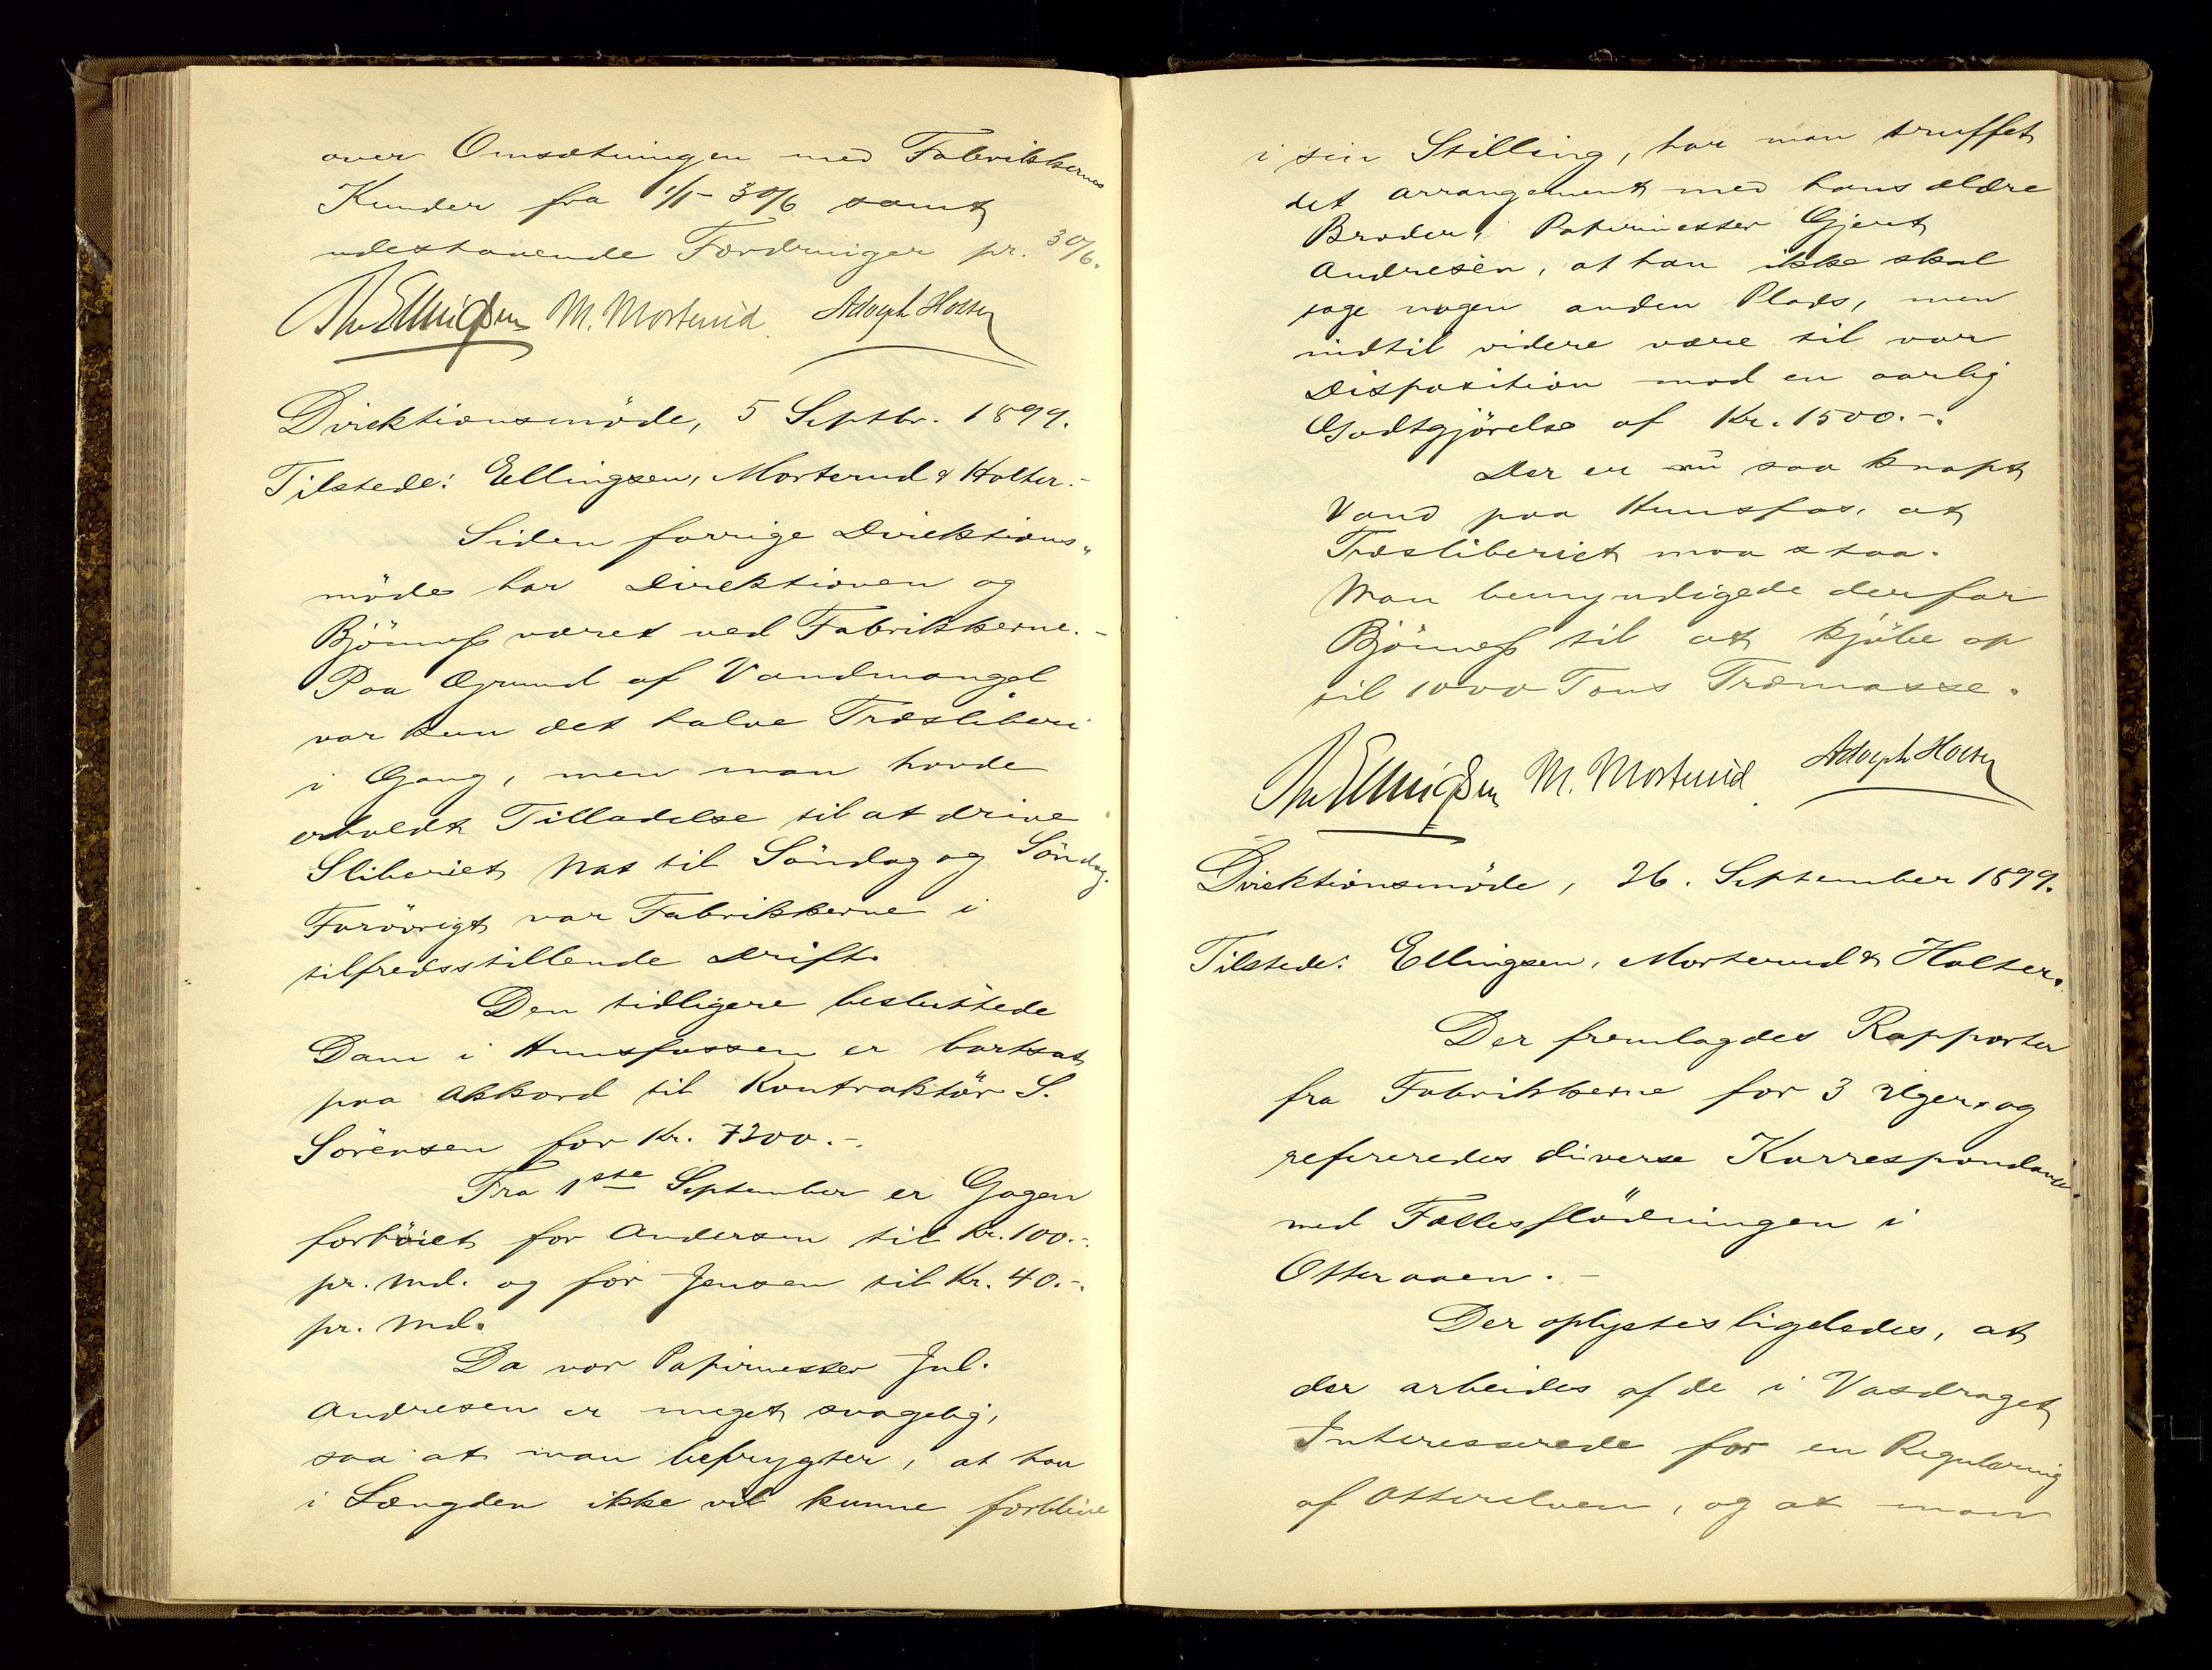 over Omsætningen med Fabrikkernes
Kunder fra 1/1 - 30/6 samt
udestaaende Fordringer pr. 30/6.
Th. Ellingsen M. Mosterud. Adolph Holter
Direktionsmöde, 5 Septbr. 1899.
Tilstede: Ellingsen, Morterud & Holter.-
Siden forrige Direktions„
möde har Direktionen og
Bjönness været ved Fabrikkerne.-
Paa Grund af Vandmangel
var kun det halve Træsliberi
i Gang, men man havde
erholdt Tilladelse til at drive
Sliberiet Nat til Söndag og Söndag.
Forövrigt var Fabrikkerne i
tilfredsstillende Drift.
Den tidligere besluttede
Dam i Hunsfossen er bortsat
paa Akkord til Kontraktör S.
Sörensen for Kr. 7200.-.
Fra 1ste September er Gagen
forhöiet for Andersen til Kr. 100.-.
pr. Md. og for Jensen til Kr. 40.-.
pr. Md.
Da vor Papirmester Jul.
Andresen er meget svagelig,
saa at man befrygter, at han
i Længden ikke vil kunne forblive
i sin Stilling, har man truffet
det arrangement med hans ældre
Broder, Papirmester Gjert
Andresen, at han ikke skal
söge nogen anden Plads, men
indtil videre være til vor
Disposition mod en aarlig
Godtgjörelse af Kr. 1500.-.
Der er nu saa knapt
Vand paa Hunsfos, at
Træsliberiet maa staa.
Man bemyndigede derfor
Bjönness til at kjöbe op
til 1000 Tons Træmasse.
Th. Ellingsen M. Mosterud. Adolph Holter
Direktionsmöde, 26. September 1899.
Tilstede: Ellingsen, Morterud & Holter.
Der fremlagdes Rapporter
fra Fabrikkerne for 3 Uger, og
refereredes diverse Korrespondance
med Fællesflödningen i
Otteraaen.-
Der oplystes ligeledes, at
der arbeides af de i Vasdraget
Interesserede for en Regulering
af Otterelven, og at man